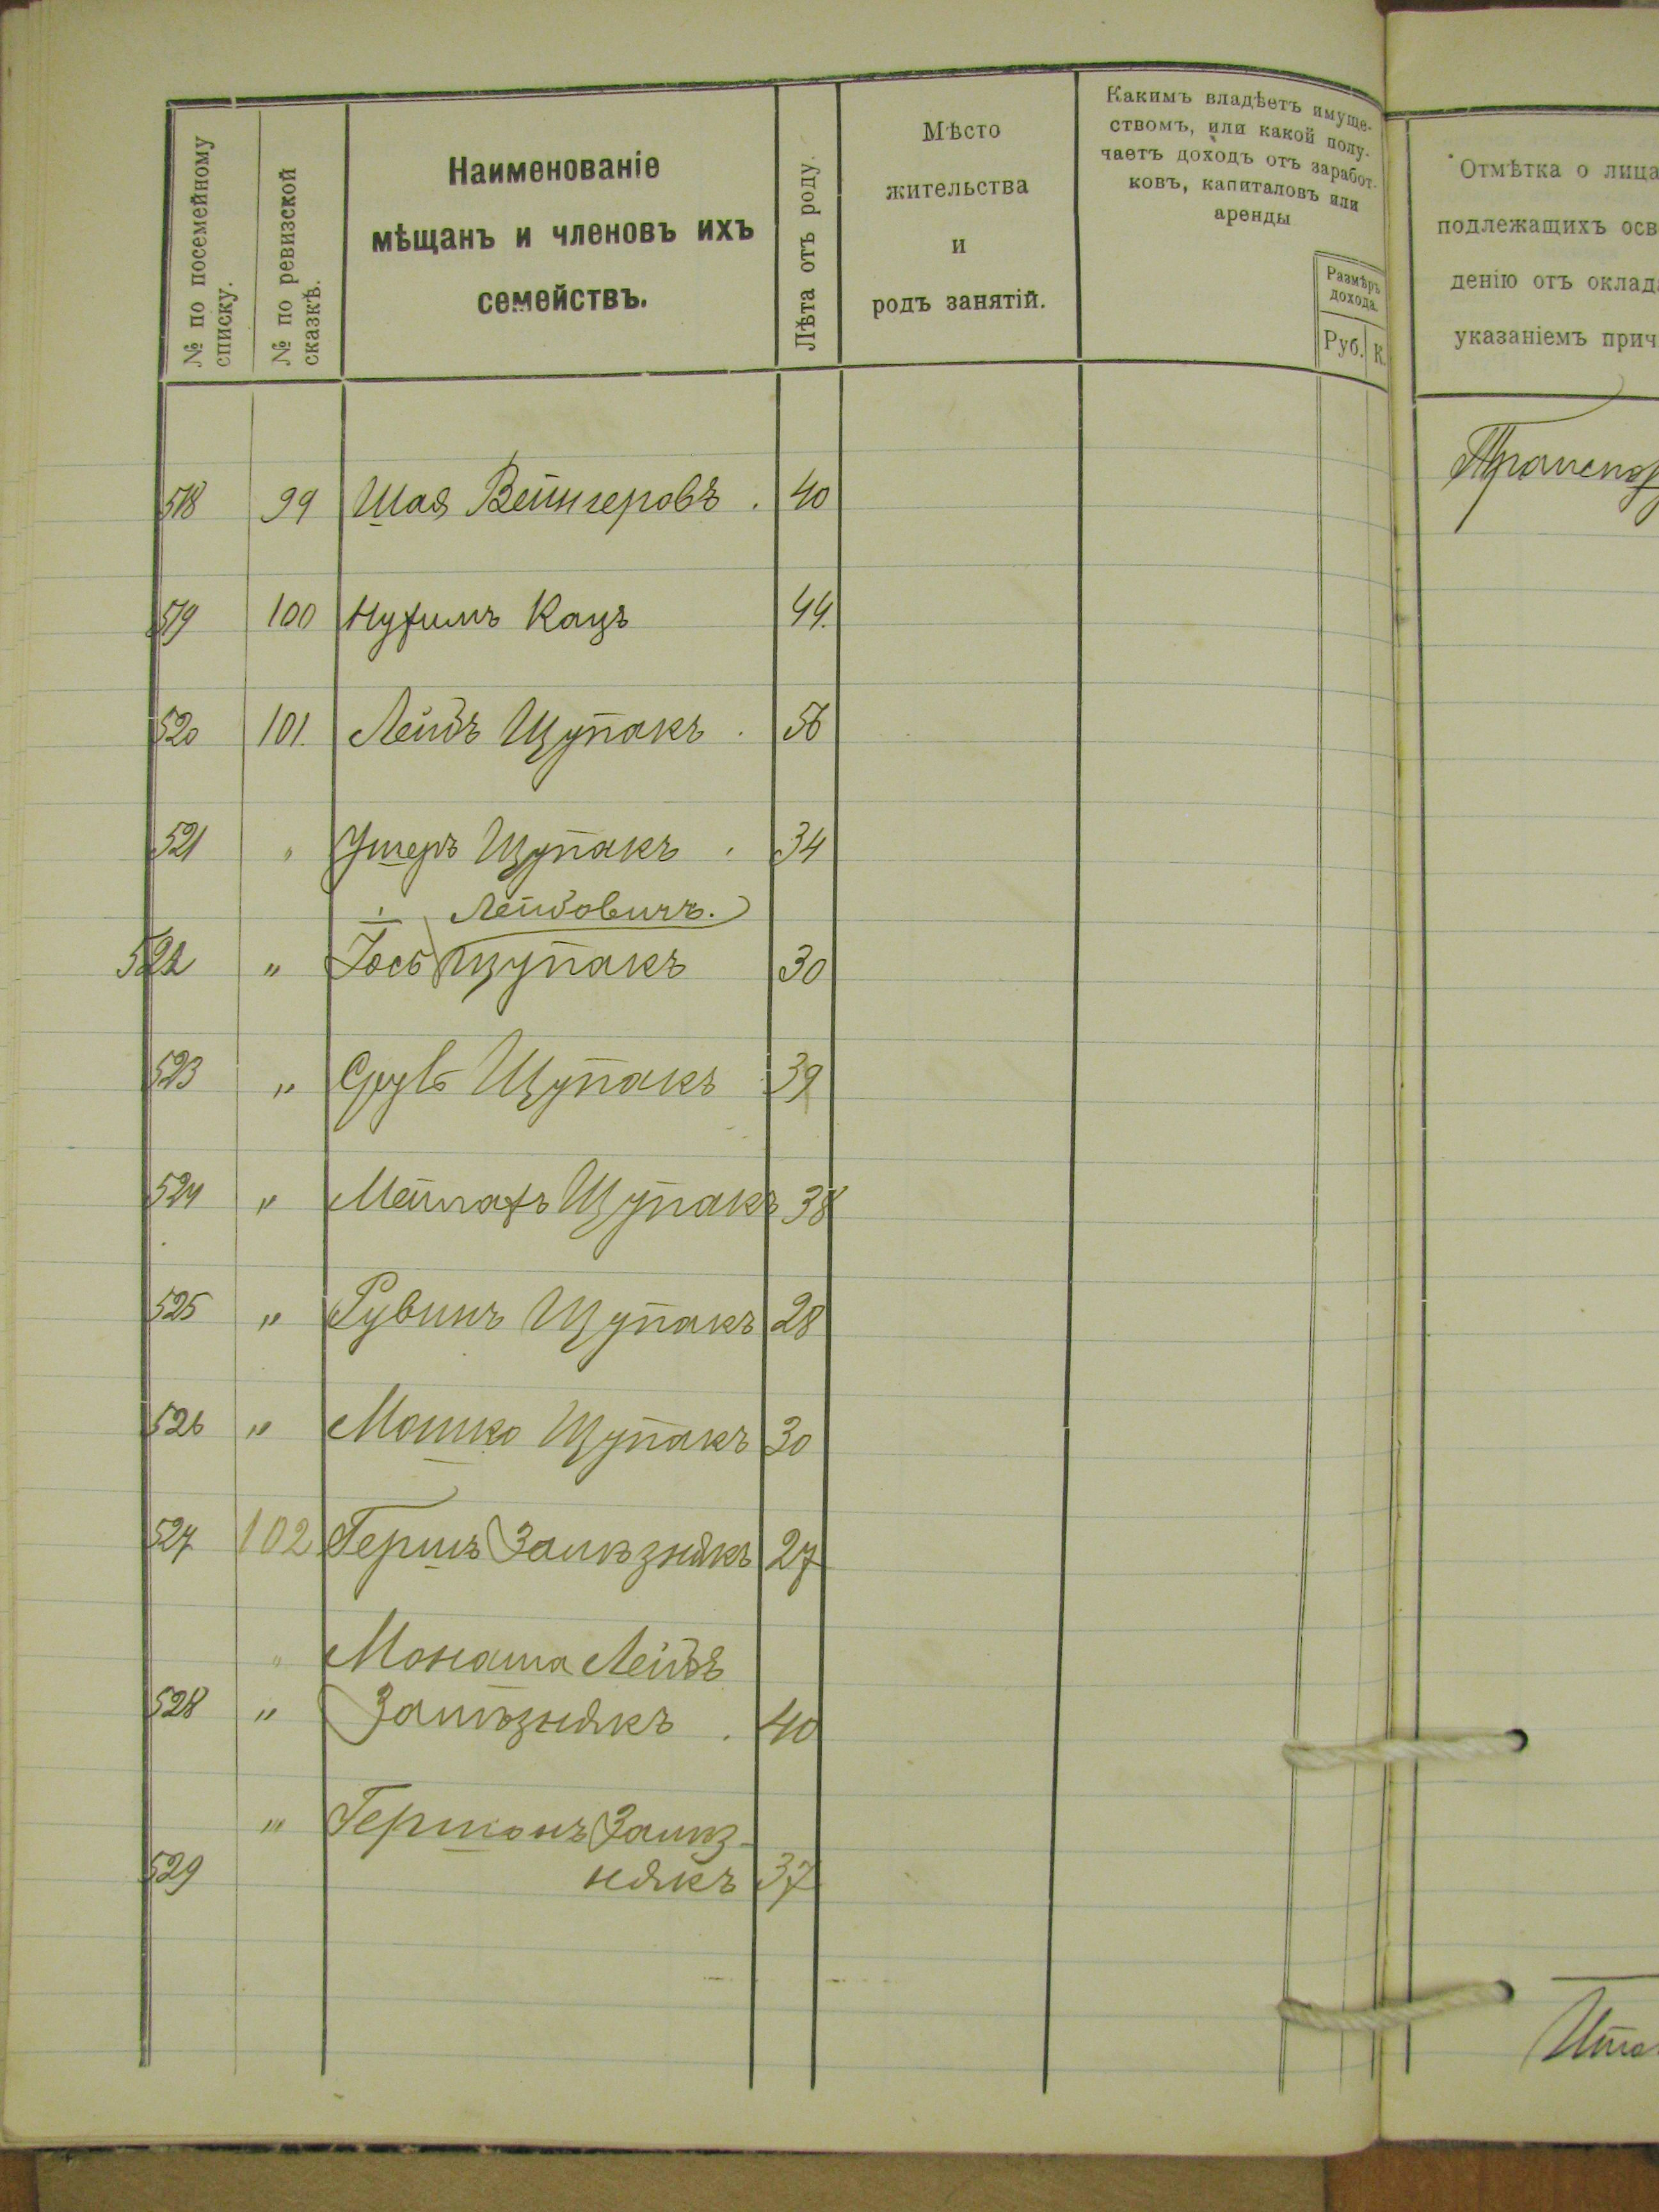 № по посемейному
списку.
№ по ревизской
сказкѣ.
Наименованіе
мѣщанъ и членовъ ихъ
семействъ.
Лѣта отъ роду.
Мѣсто
жительства
и
родъ занятій.
Какимъ владѣетъ имуще-
ствомъ, или какой полу-
чаетъ доходъ отъ заработ-
ковъ, капиталовъ или
аренды
Размѣръ
дохода.
Руб. К.
Отмѣтка о лица
подлежащихъ осв
денію отъ оклад
указаніемъ прич
Транспор
518 99 Шая Вейнгеровъ . 40
519 100 Нухимъ Кацъ 44.
520 101. Лейбъ Щупакъ . 56
521 " Ушеръ Щупакъ . 34
Лейбовичъ.
522 " Іось Щупакъ 30
523 " Сруль Щупакъ 39
524 " Мейлахъ Щупакъ 38
525 " Рувинъ Щупакъ 28
526 " Мошко Щупакъ 30
527 102 Гершъ Зализнякъ 27
" Монаша Лейбъ
528 " Зализнякъ . 40
" Гершонъ Зализ-
529 някъ 37
Итого